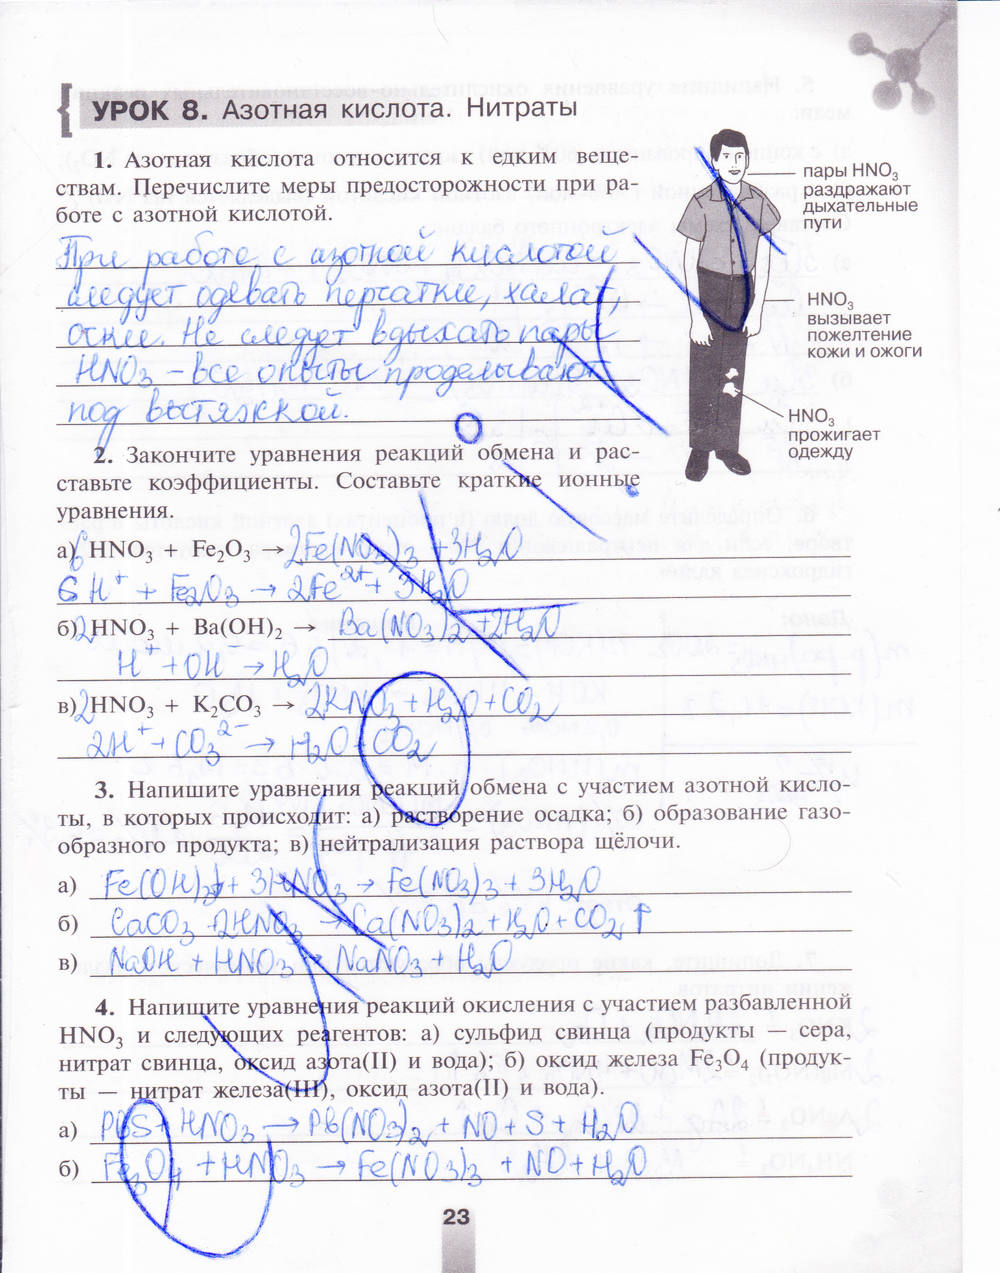 УРОК 8. Азотная кислота. Нитраты
1. Азотная кислота относится к едким веще-
ствам. Перечислите меры предосторожности при ра-
боте с азотной кислотой.
При работе с азотной кислотой
следует одевать перчатки, халат,
очки. Не следует вдыхать пары
HNO3 – все опыты проделывают
под вытяжкой.
пары HNO₃
раздражают
дыхательные
пути
HNO₃
вызывает
пожелтение
кожи и ожоги
HNO₃
прожигает
одежду
2. Закончите уравнения реакций обмена и рас-
ставьте коэффициенты. Составьте краткие ионные
уравнения.
а) 6 HNO₃ + Fe₂O₃ → 2Fe(NO₃)₃ + 3H₂O
6H⁺ + Fe₂O₃ → 2Fe²⁺ + 3H₂O
б) 2 HNO₃ + Ba(OH)₂ → Ba(NO₃)₂ + 2H₂O
H⁺ + OH⁻ → H₂O
в) 2 HNO₃ + K₂CO₃ → 2KNO₃ + H₂O + CO₂
2H⁺ + CO₃²⁻ → H₂O + CO₂
3. Напишите уравнения реакций обмена с участием азотной кисло-
ты, в которых происходит: а) растворение осадка; б) образование газо-
образного продукта; в) нейтрализация раствора щёлочи.
а) Fe(OH)₃↓ + 3HNO₃ → Fe(NO₃)₃ + 3H₂O
б) CaCO₃ + 2HNO₃ → Ca(NO₃)₂ + H₂O + CO₂ ↑
в) NaOH + HNO₃ → NaNO₃ + H₂O
4. Напишите уравнения реакций окисления с участием разбавленной
HNO₃ и следующих реагентов: а) сульфид свинца (продукты — сера,
нитрат свинца, оксид азота(II) и вода); б) оксид железа Fe₃O₄ (продук-
ты — нитрат железа(III), оксид азота(II) и вода).
а) PbS + HNO₃ → Pb(NO₃)₂ + NO + S + H₂O
б) Fe₃O₄ + HNO₃ → Fe(NO₃)₃ + NO + H₂O
23